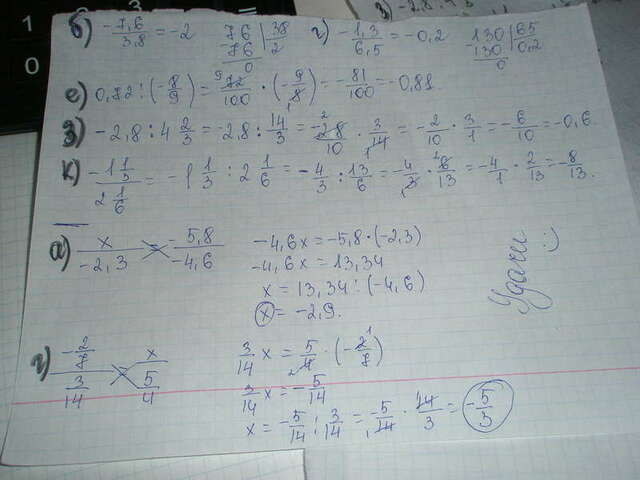 б) -7,6/3,8 = -2 76 | 38
-76 | 2
0
г) -1,3/6,5 = -0,2 130 | 65
-130 | 0,2
0
е) 0,72 : (-8/9) = 72/100 · (-9/8) = -81/100 = -0,81.
з) -2,8 : 4 2/3 = -2,8 : 14/3 = -28/10 · 3/14 = -2/10 · 3/1 = -6/10 = -0,6.
к) -1 1/3 / 2 1/6 = -1 1/3 : 2 1/6 = -4/3 : 13/6 = -4/3 · 6/13 = -4/1 · 2/13 = -8/13.
а) x/-2,3 = -5,8/-4,6 -4,6x = -5,8 · (-2,3)
-4,6x = 13,34
x = 13,34 : (-4,6)
x = -2,9.
Удачи :)
г) x 3/14 x = 5/4 ·
3/14 5/4 3/14 x = -5/14
x = -5/14 : 3/14 = -5/14 · 14/3 = -5/3